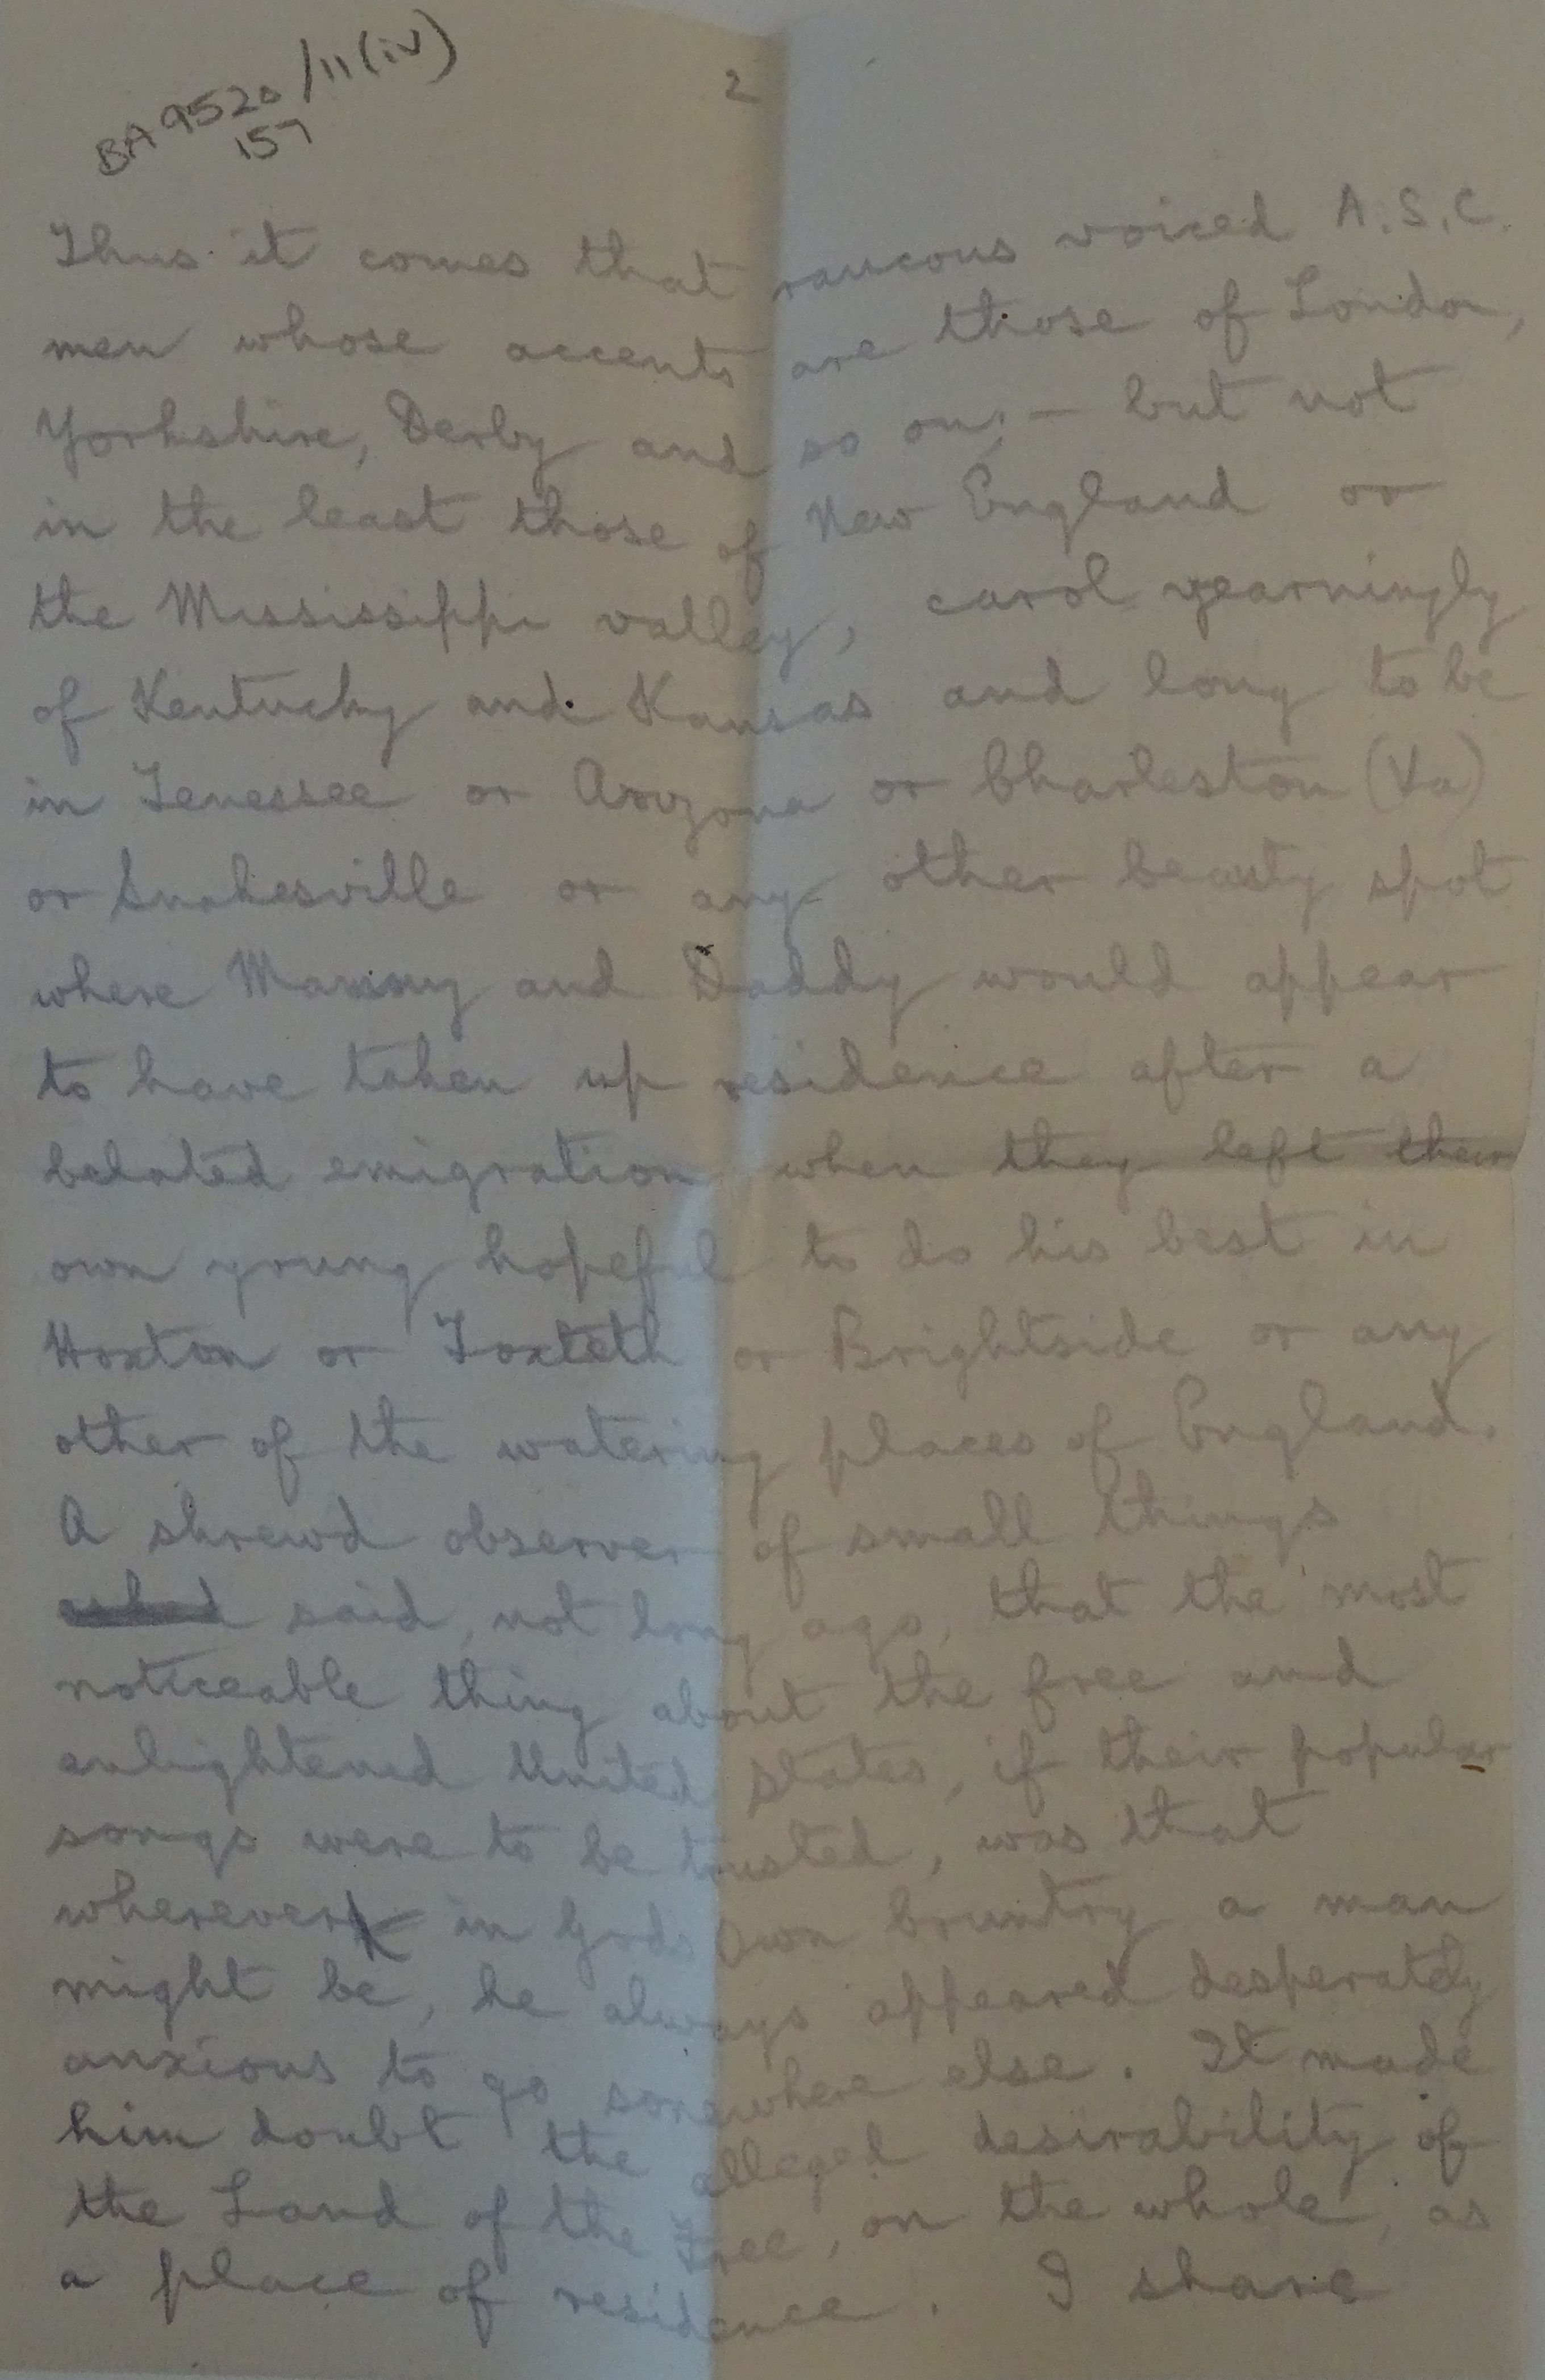 BA 9520/11(iv)
157
2
Thus it comes that raucous voiced A.S.C.
men whose accents are those of London,
Yorkshire, Derby and so on; — but not
in the least those of New England or
the Mississippi valley, carol yearningly
of Kentucky and Kansas and long to be
in Tenessee or Arizona or Charleston (Va)
or Snakesville or any other beauty spot
where Mammy and Daddy would appear
to have taken up residence after a
belated emigration when they left their
own young hopeful to do his best in
Hoxton or Toxteth or Brightside or any
other of the watering places of England.
A shrewd observer of small things
said, not long ago, that the most
noticeable thing about the free and
enlightened United States, if their popular
songs were to be trusted, was that
wherever in Gods Own Country a man
might be, he always appeared desperately
anxious to go somewhere else. It made
him doubt the alleged desirability of
the Land of the Free, on the whole, as
a place of residence. I share